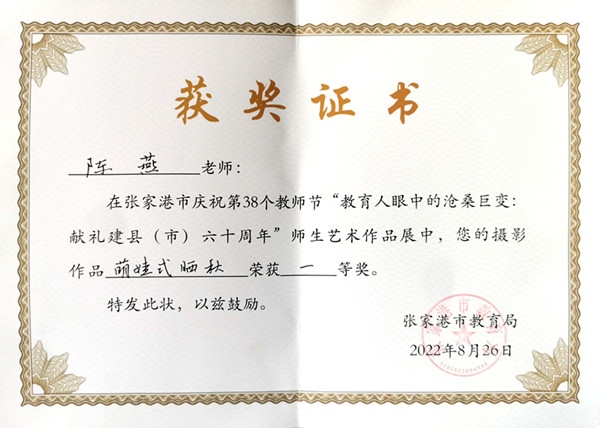 获奖证书
陈燕 老师：
在张家港市庆祝第38个教师节“教育人眼中的沧桑巨变：
献礼建县（市）六十周年”师生艺术作品展中，您的摄影
作品 萌娃式晒秋 荣获 一 等奖。
特发此状，以兹鼓励。
张家港市教育局
2022年8月26日